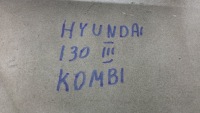 HYUNDAI
130 III
KOMBI